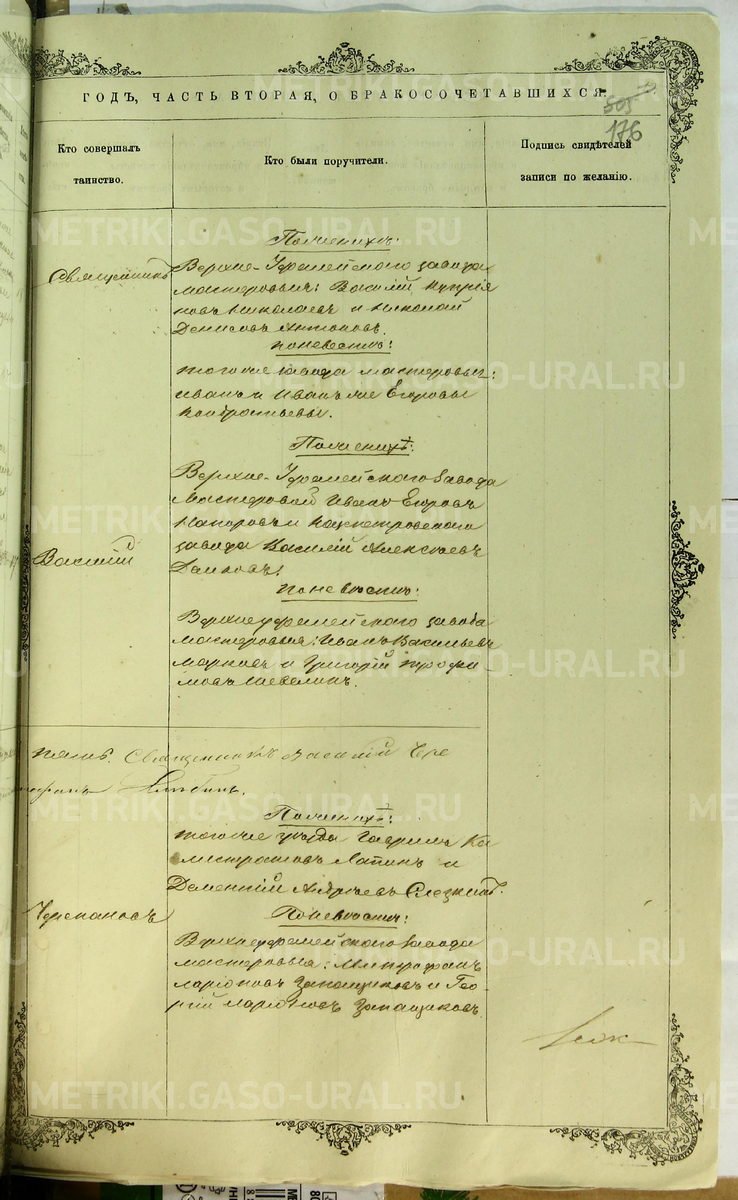 ГОДЪ, ЧАСТЬ ВТОРАЯ, О БРАКОСОЧЕТАВШИХСЯ.
505
176
Кто совершалъ
таинство.
Кто были поручители.
Подпись свидѣтелей
записи по желанію.
Священникъ
По женихѣ:
Верхне-Уфалейскаго завода
мастеровыи: Василій Купріа
новъ Николаевъ и Николай
Денисовъ Антоновъ.
по невестѣ:
тогоже завода мастеровыи:
Иванъ и Иванъ же Егоровы
Кондратьевы.
По женихѣ:
Верхне-Уфалейскаго завода
Мастеровой Иванъ Егоровъ
и
завода Василій Алексѣевъ
Василій
По невѣстѣ:
Верхнеуфалейскаго завода
мастеровыя: Иванъ Васильевъ
Марковъ и Григорій Трофи
мовъ Шевелинъ.
Священникъ Василій Чре
По женихѣ:
тогоже Гаврилъ Ка
листратовъ Лапинъ и
Дементій
Черемановъ
По невѣстѣ:
Верхнеуфалейскаго завода
мастеровыя: Митрофанъ
Ларіоновъ Запащиковъ и Геор
гій Ларіоновъ Запащиковъ.
METRIKI.GASO-URAL.RU